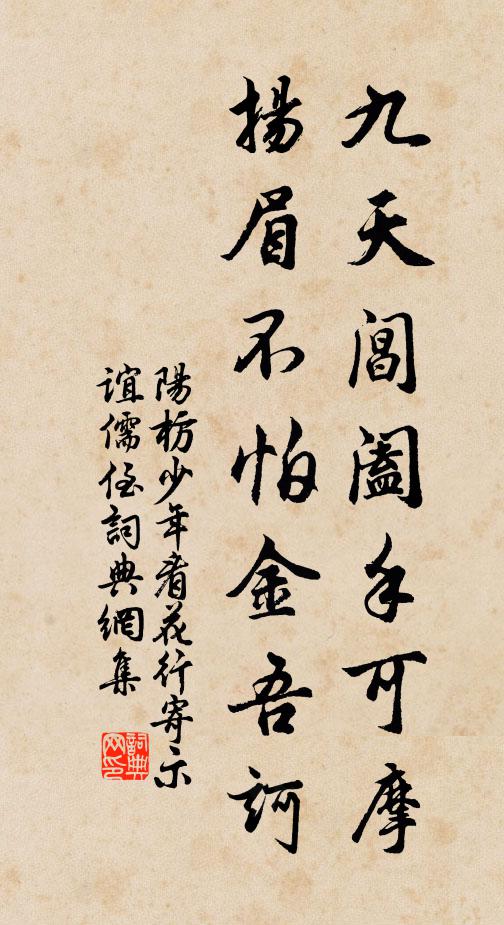 九天閶闔手可摩
揚眉不怕金吾訶
陽枋少年看花行寄示
誼儒侄詞典網集
詞典網印